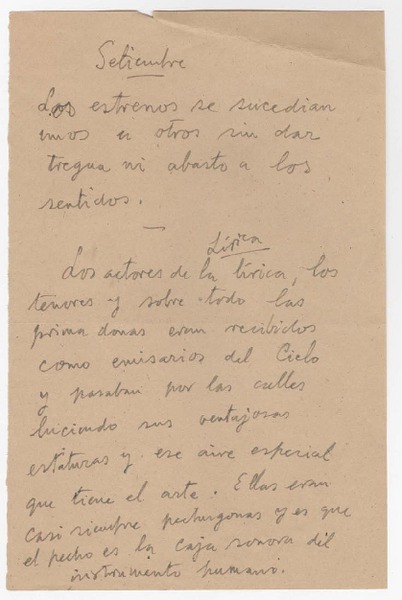 Setiembre
Los estrenos se sucedian
unos a otros sin dar
tregua ni abasto a los
sentidos.
Lírica
Los actores de la lírica, los
tenores y sobre todo las
prima donas eran recibidos
como emisarios del Cielo
y pasaban por las calles
luciendo sus ventajosas
estaturas y ese aire especial
que tiene el arte. Ellas eran
casi siempre pechugonas y es que
el pecho es la caja sonora del
instrumento humano.